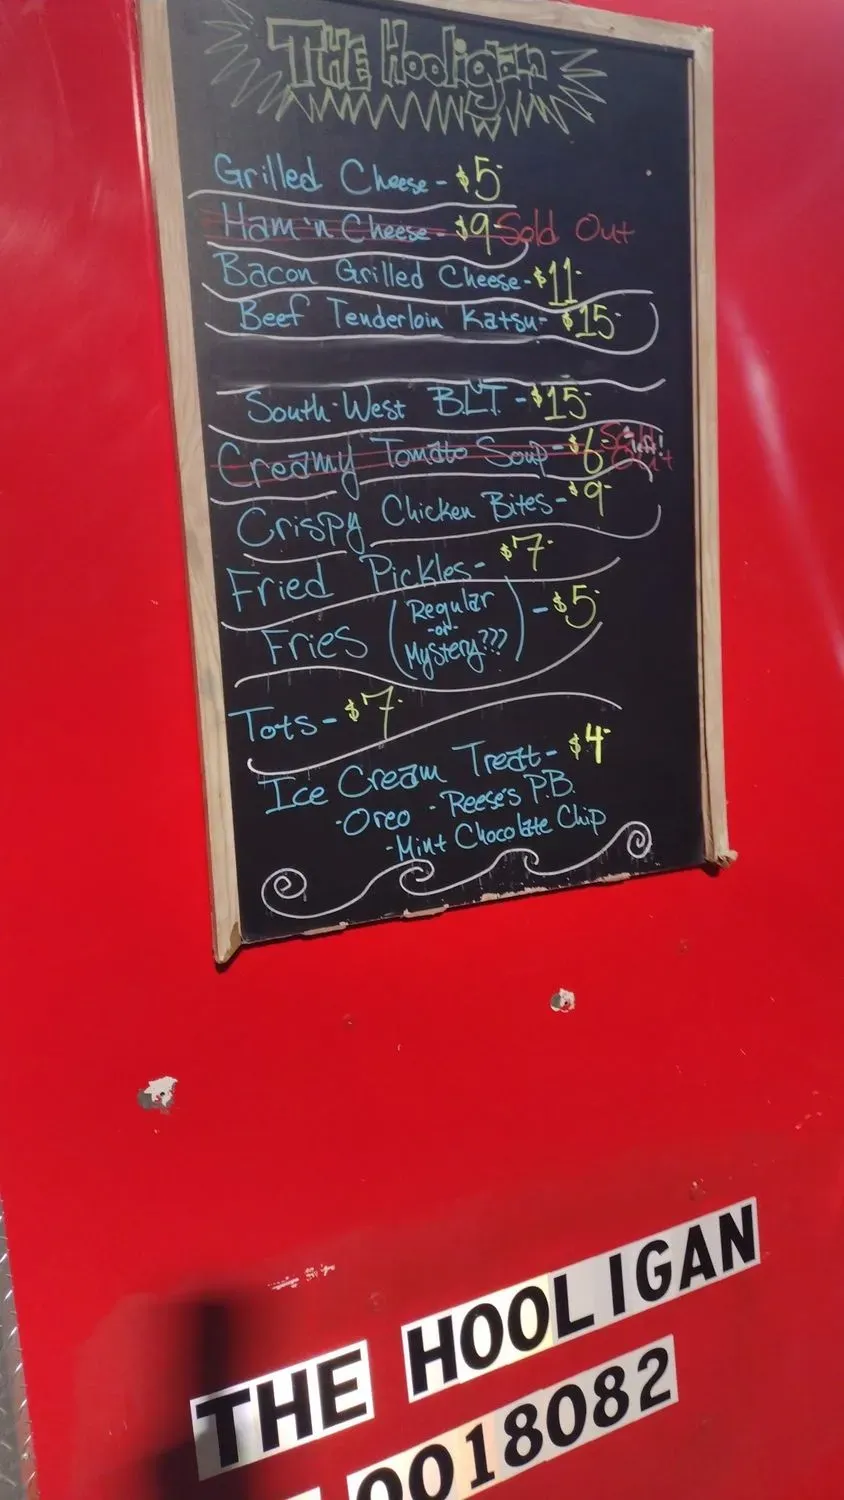 THE Hooligan
Grilled Cheese - $5
Ham 'n Cheese - $9 Sold Out
Bacon Grilled Cheese - $11
Beef Tenderloin Katsu - $15
South-West BLT - $15
Creamy Tomato Soup - $6 Sold Out left!
Crispy Chicken Bites - $9
Fried Pickles - $7
Fries (Regular -or- Mystery???) - $5
Tots - $7
Ice Cream Treat - $4
-Oreo -Reese's P.B.
-Mint Chocolate Chip
THE HOOLIGAN
0018082